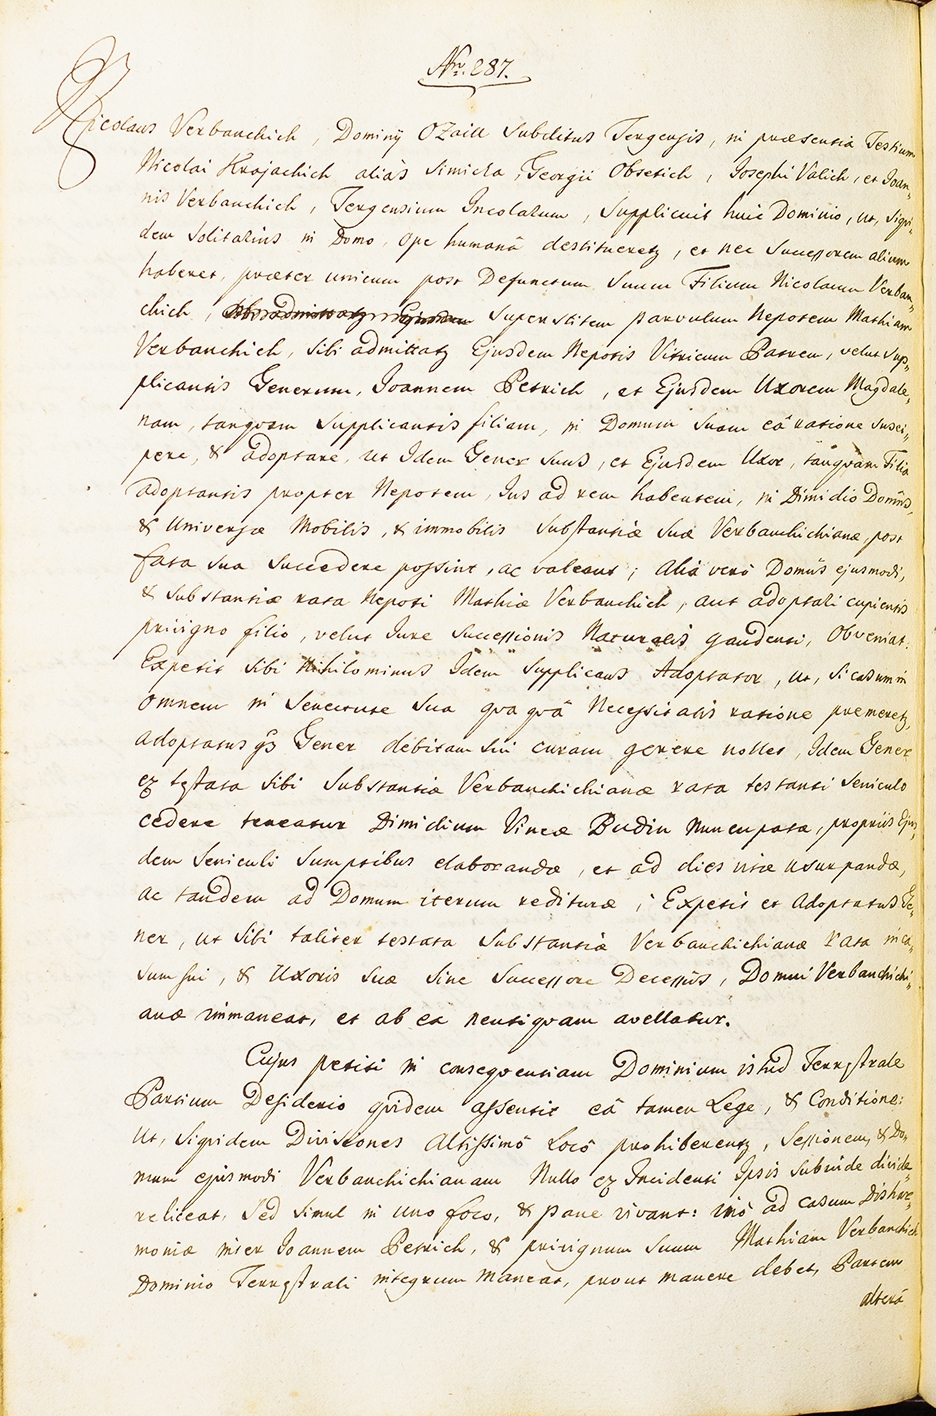 Nro. 287.
Nicolaus Verbanchich, Dominÿ Ozaill Subditus Tergensis, in præsentia Testium
Nicolai Krajachich aliàs Simicha, Georgii Obsetich, Josephi Valich, et Joan„
nis Verbanchich, Tergensium Incolarum, Supplicuit huic Dominio, ut, siqui„
dem Solitarius in Domo, ope humanâ destitueretz, et nec Successorem alium
haberet, præter unicum post Defunctum Suum Filium Nicolaum Verban„
chich, Superstitem parvulum Nepotem Mathiam
Verbanchich, Sibi admittatz Ejusdem Nepotis Vitricum Patrem, velut Sup„
plicantis Generum, Joannem Petrich, et Ejusdem Uxorem Magdale„
nam, tanqvam Supplicantis filiam, in Domum Suam eâ ratione Susci„
pere, & adoptare, ut Idem Gener Suus, et Ejusdem Uxor, tanqvam Filia
adoptantis propter Nepotem, Jus ad rem habentem, in Dimidio Domûs,
& Universæ Mobilis, & immobilis Substantiæ Suæ Verbanchichianæ, post
fata Sua Succedere possint, ac valeant; Alia verò Domûs ejusmodi,
& Substantiæ rata Nepoti Mathiæ Verbanchich, aut adoptari cupientis
privigno filio, velut Jure Successionis Naturalis gaudenti, Obveniat.
Expetit Sibi Nihilominus Idem Supplicans Adoptator, ut, Si casum in
omnem in Senectute Sua qvaqvâ Necessitatis ratione premeretz,
adoptatus qs Gener debitam Sui curam gerere nollet, Idem Gener
ex testata Sibi Substantiæ Verbanchichianæ rata testanti Seniculo
cedere teneatur Dimidium Vineæ Budin Nuncupatæ, propriis Ejus„
dem Seniculi Sumptibus elaborandæ, et ad dies vitæ usurpandæ,
ac tandem ad Domum iterum redituræ; Expetit et Adoptatus Ge„
ner, ut Sibi taliter testata Substantiæ Verbanchichianæ Rata in ca„
sum sui, & Uxoris Suæ Sine Successore Decessûs, Domui Verbanchichi„
anæ immaneat, et ab ea neutiqvam avellatur.
Cujus petiti in conseqventiam Dominium istud Terrestrale
Partium Desiderio qvidem assentit eâ tamen Lege, & Conditione:
Ut, Siqvidem Divisiones Altissimô Locô prohiberentz, Sessionem, & Do„
mum ejusmodi Verbanchichianam Nullo ex Incidenti Ipsis Subinde dividere
reliceat, Sed Simul in uno foco, & pane vivant: imò ad casum Dishar„
moniæ inter Joannem Petrich, & privignum Suum Mathiam Verbanchich
Dominio Terrestrali integrum maneat, prout manere debet, Partem
alterâ